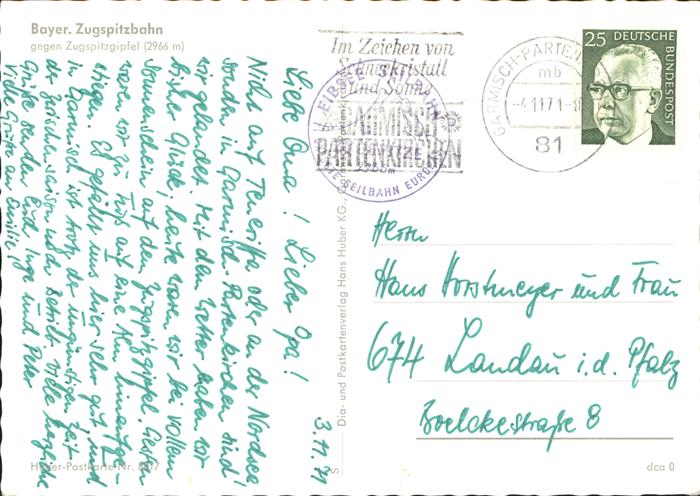 Bayer. Zugspitzbahn
gegen Zugspitzgipfel (2966 m)
3.11.71
Liebe Oma! Lieber Opa!
Nicht auf Teneriffa oder an der Nordsee
sondern in Garmisch-Partenkirchen sind
wir gelandet. Mit dem Wetter haben wir
Glück, heute waren wir bei vollem
Sonnenschein auf dem Zugspitzgipfel. Gestern
waren wir zu Fuß auf eine Alm hinaufge-
stiegen. Es gefällt uns hier sehr gut, und
in Garmisch ist trotz der ungünstigen Zeit
der Zwischensaison noch Betrieb. Viele herzliche
Grüße senden Euch Inge und Peter
Viele Grüße
Huber-Postkarte Nr.
S
Dia- und Postkartenverlag Hans Huber KG.,
Im Zeichen von
Schneekristall
und Sonne
GARMISCH
PARTENKIRCHEN
EIBSEE SEILBAHN
SEILBAHN EUROPAS
GARMISCH-PARTENK
mb
-4.11.71-18
81
25 DEUTSCHE
BUNDESPOST
Herrn
Hans Horstmeyer und Frau
674 Landau i.d. Pfalz
Boelckestraße 8
dca 0